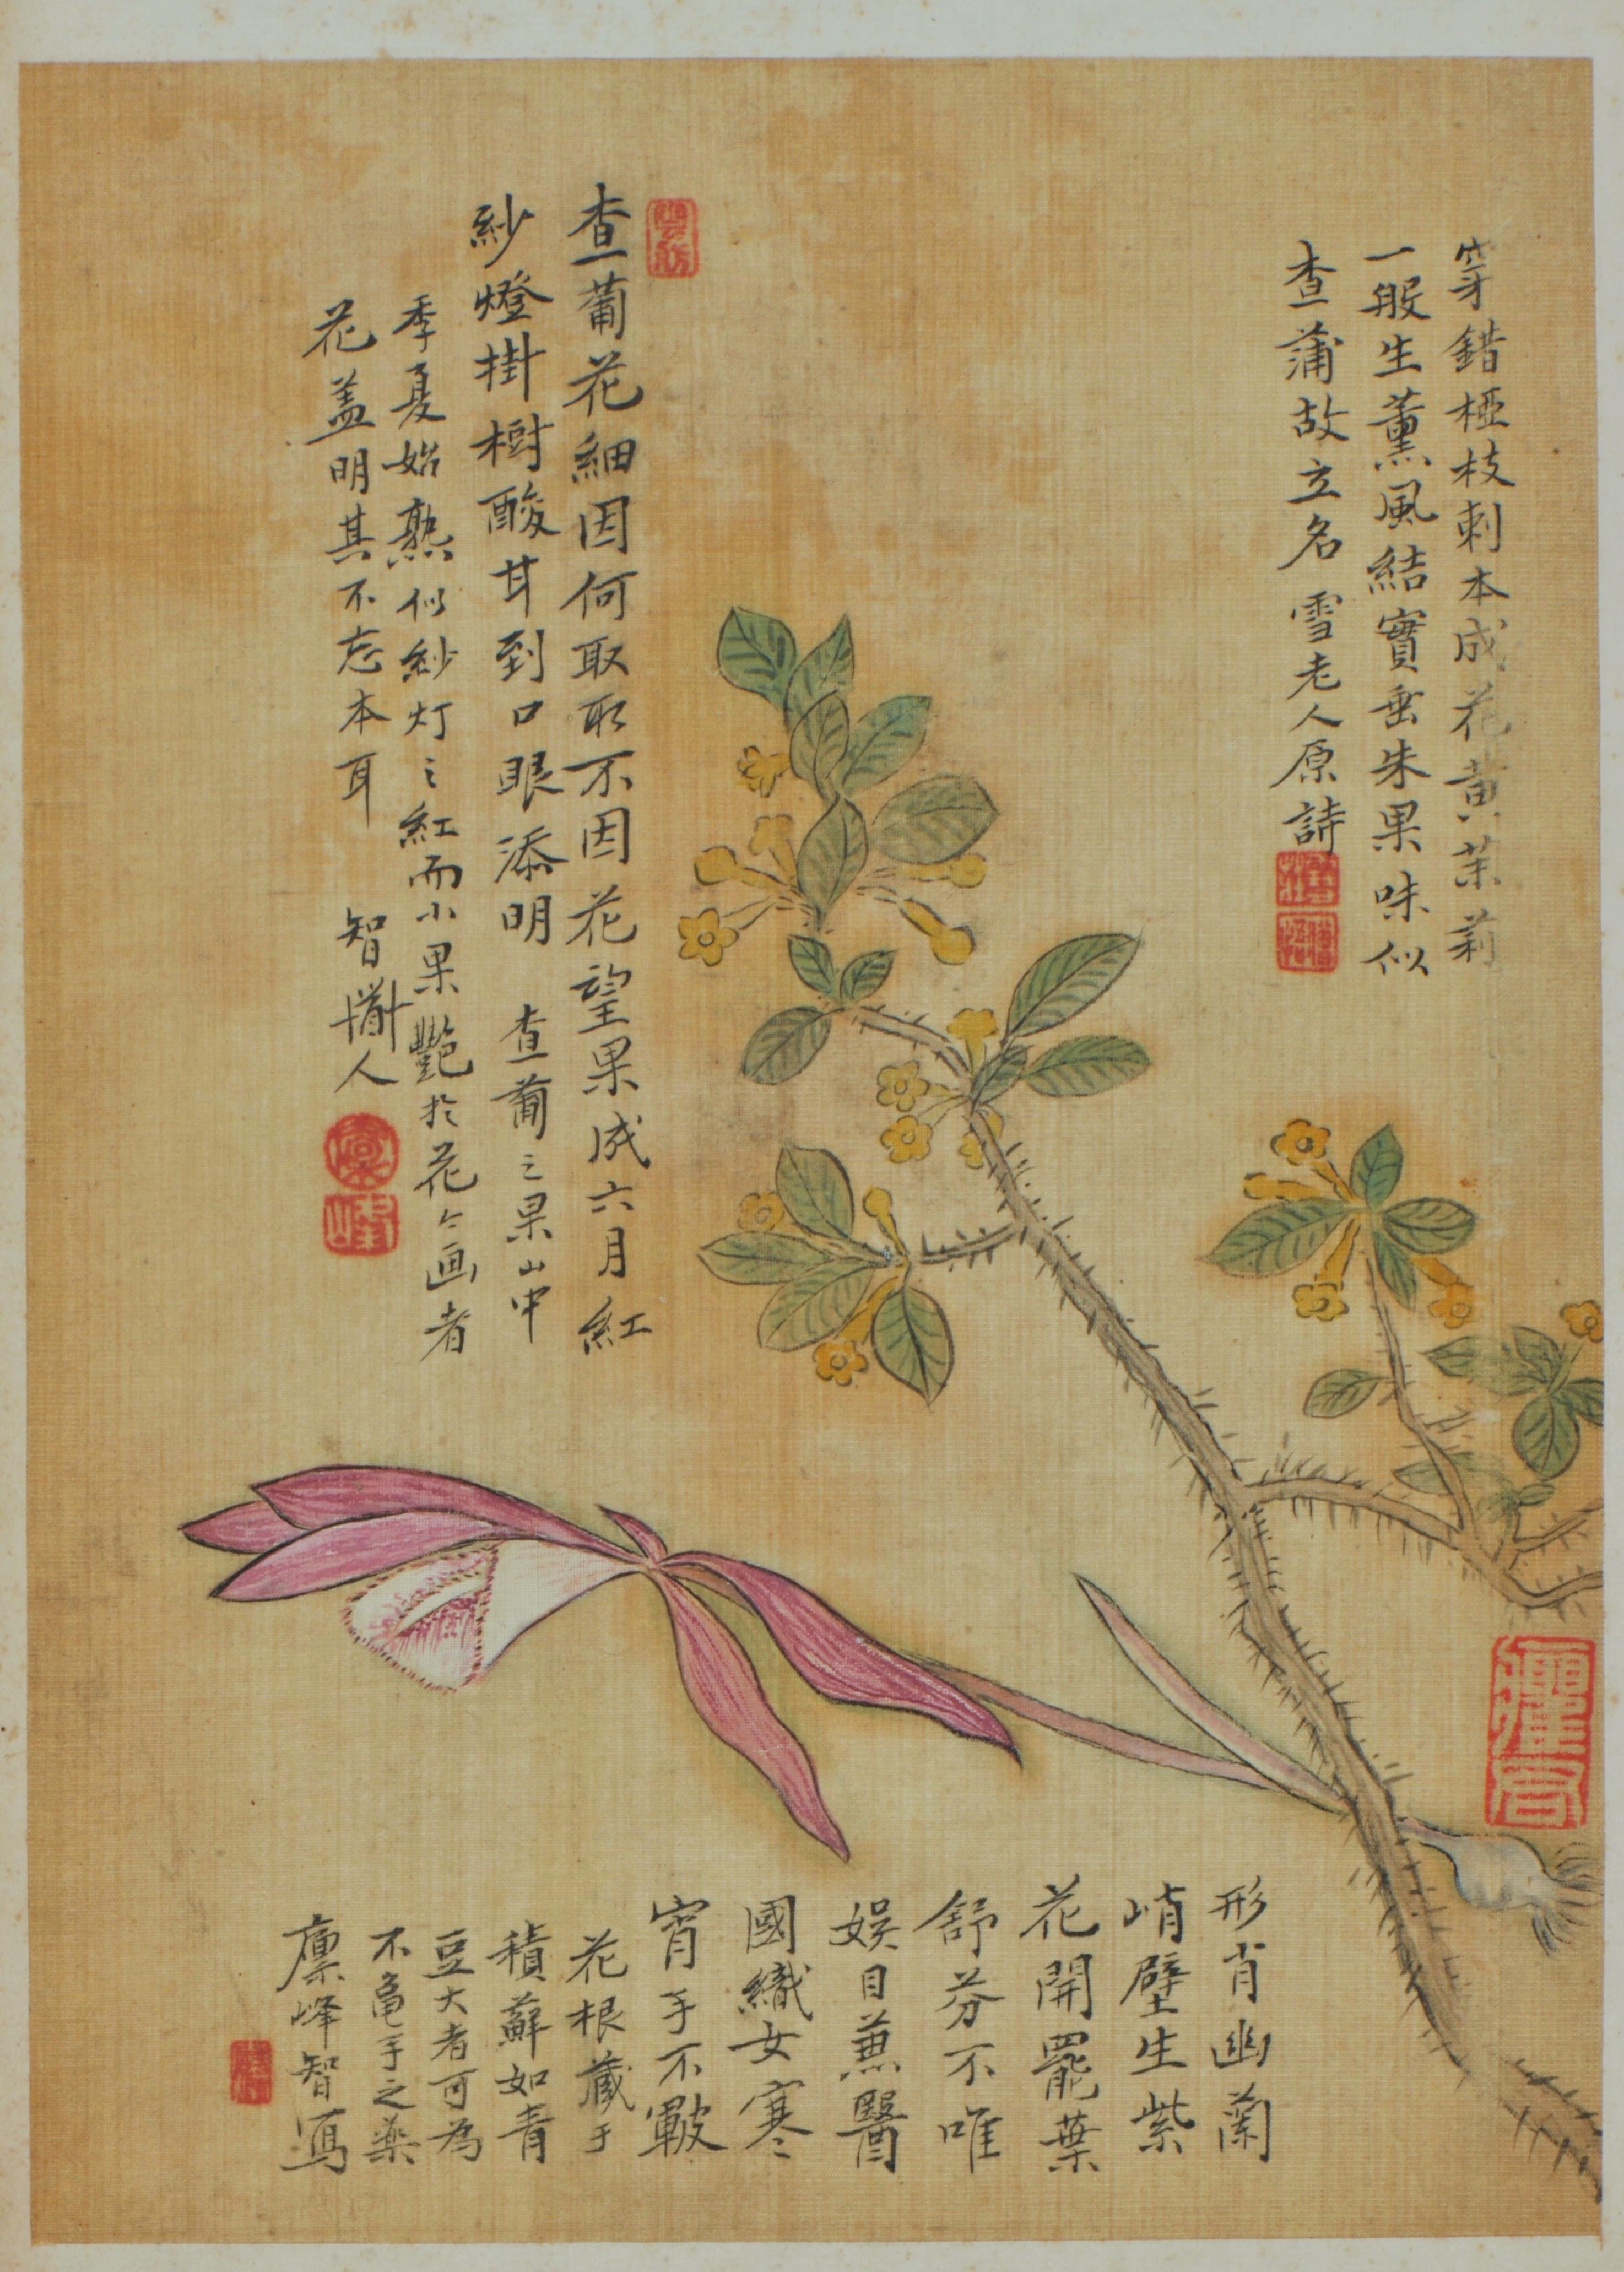 穿錯椏枝刺本成花黃茉莉
一般生薰風結實垂朱果味似
查蒲故立名 雪老人原詩
查葡花細因何取取不因花望果成六月紅
紗燈掛樹酸甘到口眼添明 查葡之果山中
季夏始熟似紗灯之紅而小果艷於花今画者
花盖明其不忘本耳 智 人
形肖幽蘭
峭壁生紫
花開罷葉
舒芬不唯
娛目兼醫
國織女寒
宵手不皸
花根藏于
積蘚如青
豆大者可為
不龜手之藥
凛峰智寫